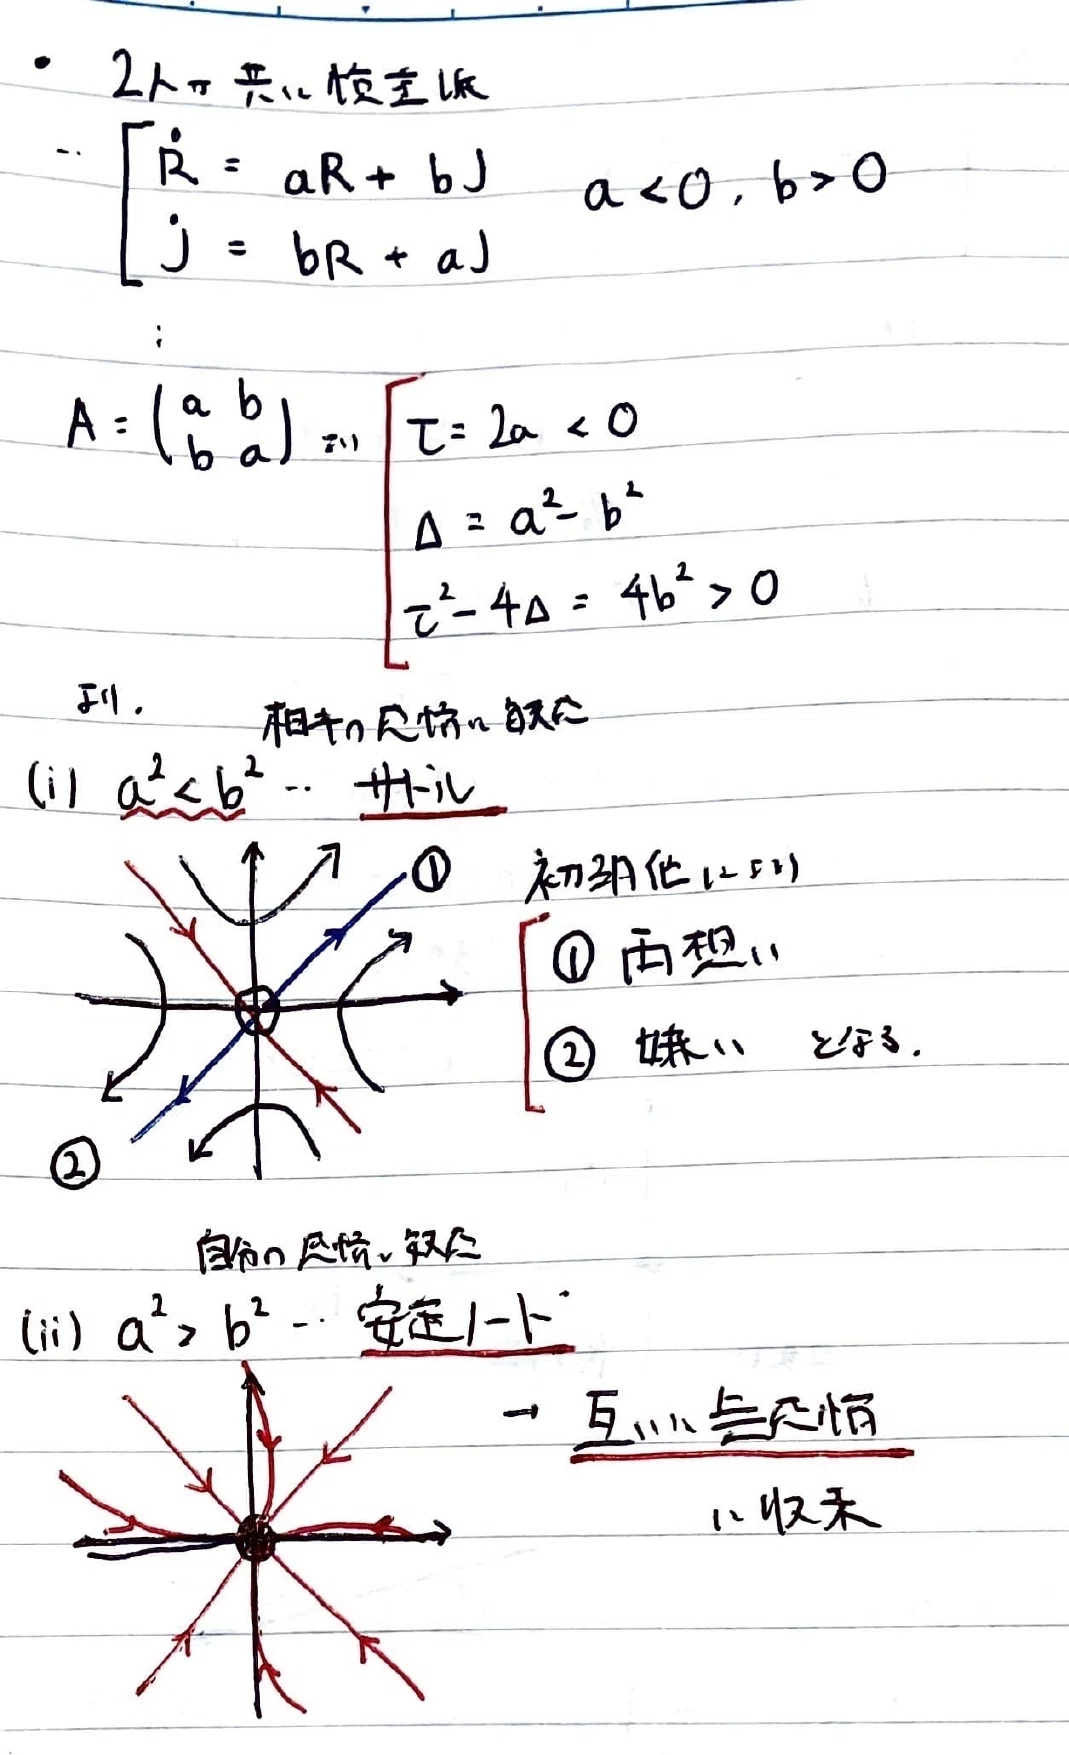 ・ 2人が共に慎重派
… Ṙ = aR + bJ a < 0, b > 0
J̇ = bR + aJ
⋮
A = (a b
b a) より τ = 2a < 0
Δ = a² - b²
τ² - 4Δ = 4b² > 0
より.
相手の感情に敏感
(i) a² < b² … サドル
① 初期値により
① 両想い
② 嫌い となる.
②
自分の感情に敏感
(ii) a² > b² … 安定ノード
→ 互いに無感情
に収束